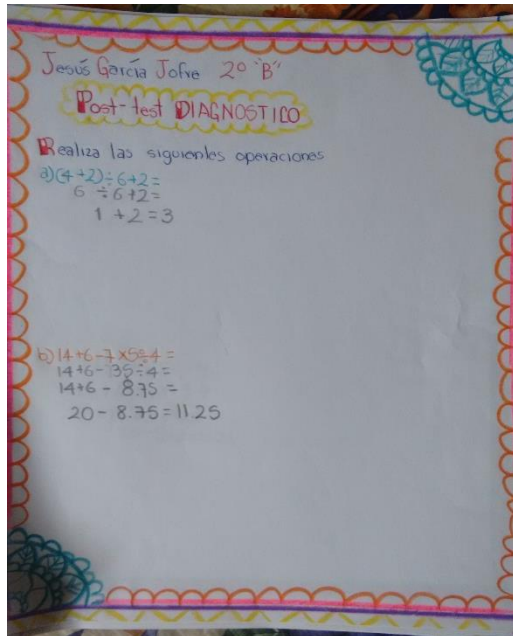 Jesús García Jofre 2° "B"
Post-test DIAGNOSTICO
Realiza las siguientes operaciones
a)(4+2)÷6+2=
6 ÷6+2=
1 +2=3
b)14+6-7×5÷4=
14+6-35÷4=
14+6- 8.75 =
20- 8.75=11.25